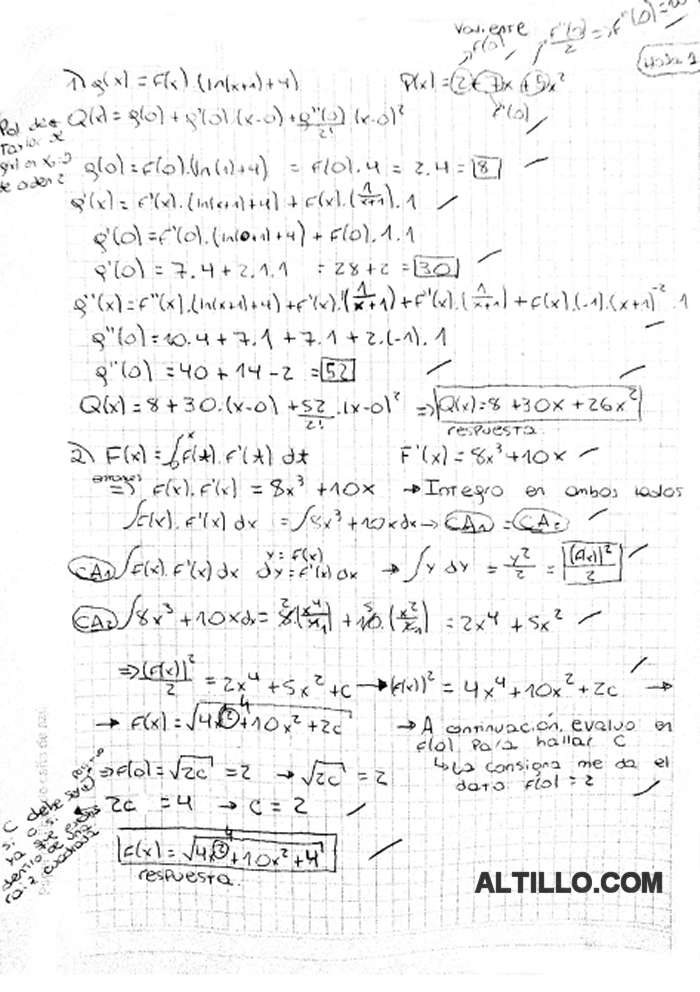 Valiente
f(0)
f''(0)/2 => f''(0) = 10
Hoja 1
1) g(x) = f(x).(ln(x+1)+4)
P(x) = 2 + 7x + 5x²
f'(0)
Q(x) = g(0) + g'(0).(x-0) + g''(0)/2! (x-0)²
g(0) = f(0).(ln(1)+4) = f(0).4 = 2.4 = 8
g'(x) = f'(x).(ln(x+1)+4) + f(x).(1/x+1).1
g'(0) = f'(0).(ln(0+1)+4) + f(0).1.1
g'(0) = 7.4 + 2.1.1 = 28+2 = 30
g''(x) = f''(x).(ln(x+1)+4) + f'(x).(1/x+1) + f'(x).(1/x+1) + f(x).(-1).(x+1)⁻².1
g''(0) = 10.4 + 7.1 + 7.1 + 2.(-1).1
g''(0) = 40 + 14 - 2 = 52
Q(x) = 8 + 30.(x-0) + 52/2! .(x-0)² => Q(x) = 8 + 30x + 26x²
respuesta.
2) F(x) = ∫₀ˣ f(t).f'(t) dt F'(x) = 8x³+10x
entonces => f(x).f'(x) = 8x³ + 10x → Integro en ambos lados
∫f(x).f'(x) dx = ∫8x³ + 10x dx → CA1 = CA2
CA1 ∫f(x).f'(x) dx y = f(x) dy = f'(x) dx → ∫y dy = y²/2 = (f(x))²/2
CA2 ∫8x³ + 10x dx = 8.(x⁴/4) + 10.(x²/2) = 2x⁴ + 5x²
=> (f(x))²/2 = 2x⁴ + 5x² + c → (f(x))² = 4x⁴ + 10x² + 2c →
→ f(x) = √4x⁴ + 10x² + 2c
→ A continuación, evaluo en
f(0) para hallar C
↳ La consigna me da el
dato f(0) = 2
=> f(0) = √2c = 2 → √2c = 2
2c = 4 → c = 2
C debe ser positivo
si o si
ya que está
dentro de una
raiz cuadrada
f(x) = √4x⁴ + 10x² + 4
respuesta.
ALTILLO.COM